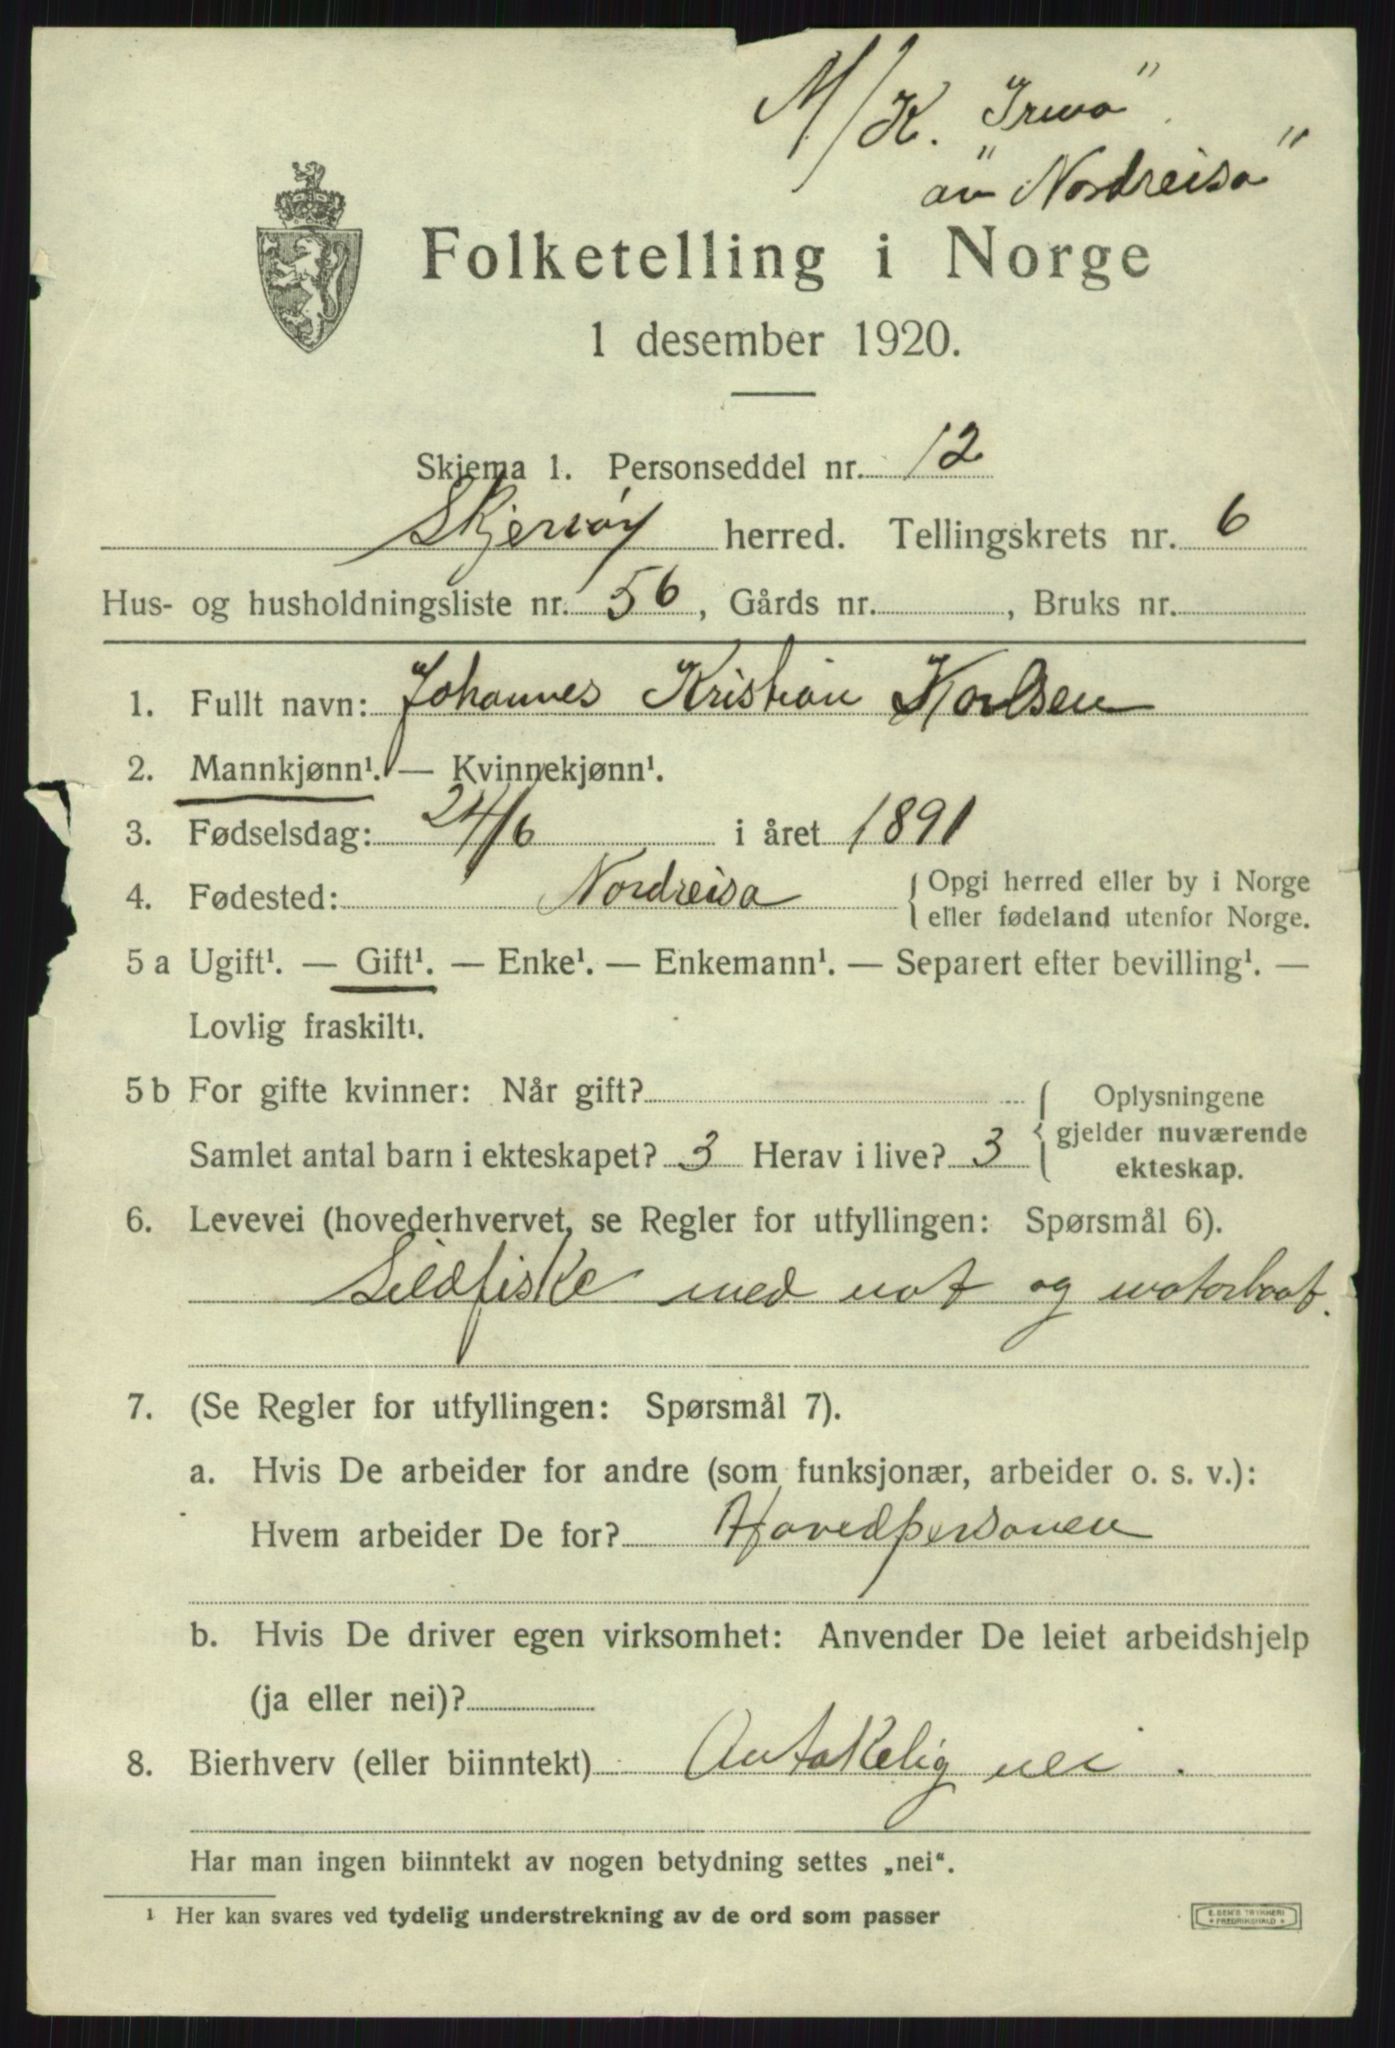 M/K. "Irma"
av "Nordreisa"
Folketelling i Norge
1 desember 1920.
Skjema 1. Personseddel nr. 12
Skjervøy herred. Tellingskrets nr. 6
Hus- og husholdningsliste nr. 56, Gårds nr. , Bruks nr.
1. Fullt navn: Johannes Kristian Karlsen
2. Mannkjønn¹. — Kvinnekjønn¹.
3. Fødselsdag: 24/6 i året 1891
4. Fødested: Nordreisa { Opgi herred eller by i Norge
eller fødeland utenfor Norge.
5 a Ugift¹. — Gift¹. — Enke¹. — Enkemann¹. — Separert efter bevilling¹. —
Lovlig fraskilt¹.
5 b For gifte kvinner: Når gift? { Oplysningene
gjelder nuværende
ekteskap.
Samlet antal barn i ekteskapet? 3 Herav i live? 3
6. Levevei (hovederhvervet, se Regler for utfyllingen: Spørsmål 6).
Sildfiske med not og motorbaat.
7. (Se Regler for utfyllingen: Spørsmål 7).
a. Hvis De arbeider for andre (som funksjonær, arbeider o. s. v.):
Hvem arbeider De for? Hovedpersonen
b. Hvis De driver egen virksomhet: Anvender De leiet arbeidshjelp
(ja eller nei)?
8. Bierhverv (eller biinntekt) Antakelig nei.
Har man ingen biinntekt av nogen betydning settes „nei“.
¹ Her kan svares ved tydelig understrekning av de ord som passer
E. SEM'S TRYKKERI
* FREDRIKSHALD *